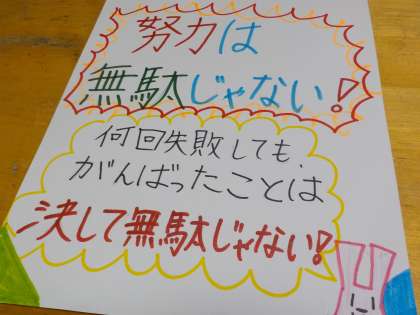 努力は
無駄じゃない!
何回失敗しても、
がんばったことは
決して無駄じゃない!